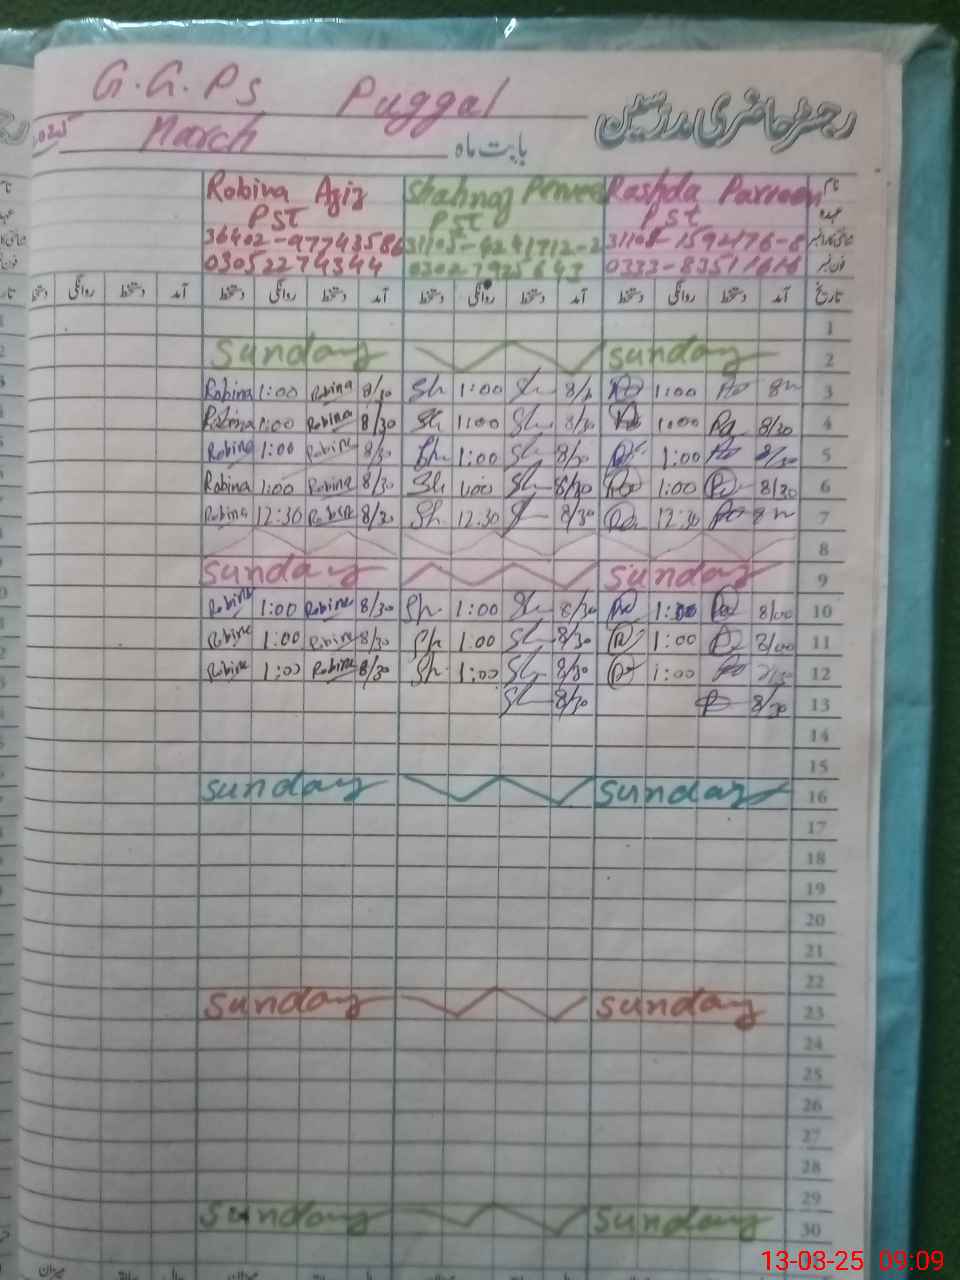 G.G.Ps Puggal
رجسٹر حاضری مدرسین
March بابت ماہ
Robina Aziz Shahnaz Perveen Rashda Parveen نام
PST PST PST عہدہ
03052274344 0302-7925643
روانگی دستخط آمد دستخط روانگی دستخط آمد دستخط روانگی دستخط آمد دستخط روانگی دستخط آمد تاریخ
1
Sunday Sunday 2
Robina 1:00 Robina 8/30 Sh 1:00 Sh 1:00 3
Robina 1:00 Robina 8/30 Sh 1:00 Sh 8/30 1:00 8/30 4
Robina 1:00 Robina 8/30 Sh 1:00 Sh 8/30 1:00 8/30 5
Robina 1:00 Robina 8/30 Sh 1:00 Sh 8/30 1:00 8/30 6
Robina 12:30 Robina 8/30 Sh 12:30 8/30 12:30 7
8
Sunday Sunday 9
Robina 1:00 Robina 8/30 Sh 1:00 Sh 8/30 1:00 8/00 10
Robina 1:00 Robina 8/30 Sh 1:00 Sh 8/30 1:00 8/00 11
Robina 1:00 Robina 8/30 Sh 1:00 Sh 8/30 1:00 12
Sh 8/30 8/30 13
14
15
Sunday Sunday 16
17
18
19
20
21
22
Sunday Sunday 23
24
25
26
27
28
29
Sunday Sunday 30
13-03-25 09:09